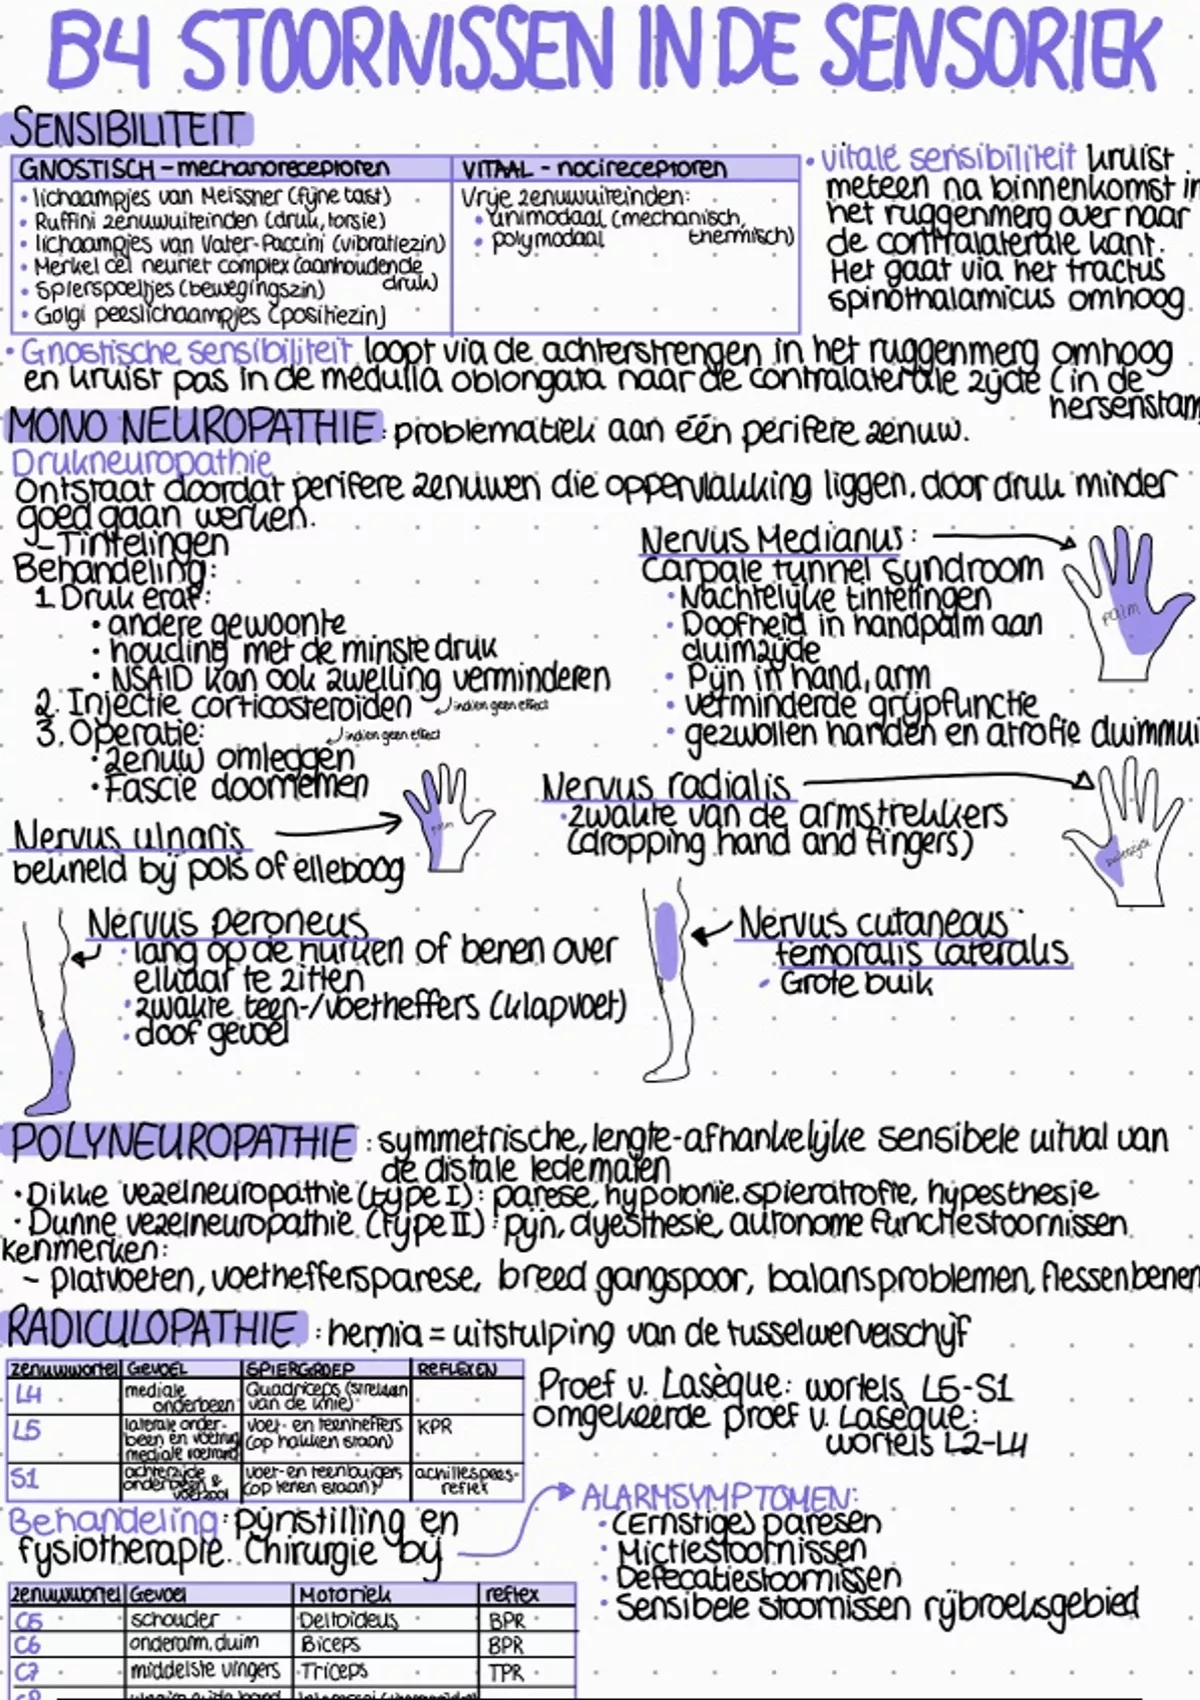 B4 STOORNISSEN IN DE SENSORIEK
SENSIBILITEIT
GNOSTISCH - mechanoreceptoren
• lichaampjes van Meissner (fijne tast)
• Ruffini zenuwuiteinden (druk, torsie)
• lichaampjes van Vater-Paccini (vibratiezin)
• Merkel cel neuriet complex (aanhoudende druk)
• Spierspoeltjes (bewegingszin)
• Golgi peeslichaampjes (positiezin)
VITAAL - nocireceptoren
Vrije zenuwuiteinden:
• unimodaal (mechanisch, thermisch)
• polymodaal
• vitale sensibiliteit kruist
meteen na binnenkomst in
het ruggenmerg over naar
de contralaterale kant.
Het gaat via het tractus
spinothalamicus omhoog
• Gnostische sensibiliteit loopt via de achterstrengen in het ruggenmerg omhoog
en kruist pas in de medulla oblongata naar de contralaterale zijde (in de
hersenstam
MONO NEUROPATHIE: problematiek aan één perifere zenuw.
Drukneuropathie
Ontstaat doordat perifere zenuwen die oppervlakkig liggen, door druk minder
goed gaan werken.
- Tintelingen
Behandeling:
1. Druk eraf:
• andere gewoonte
• houding met de minste druk
• NSAID kan ook zwelling verminderen
2. Injectie corticosteroïden indien geen effect
3. Operatie: indien geen effect
• zenuw omleggen
• Fascie doornemen
Nervus Medianus:
Carpale tunnel syndroom
• Nachtelijke tintelingen
• Doofheid in handpalm aan
duimzijde
• Pijn in hand, arm
• verminderde grijpfunctie
• gezwollen handen en atrofie duimmui
palm
Nervus ulnaris
beklneld bij pols of elleboog
palm
Nervus radialis
• zwakte van de armstrekkers
(dropping hand and fingers)
Nervus peroneus
• lang op de hurken of benen over
elkaar te zitten
• zwakte teen-/voetheffers (klapvoet)
• doof gevoel
Nervus cutaneous
femoralis lateralis
• Grote buik
POLYNEUROPATHIE: symmetrische, lengte-afhankelijke sensibele uitval van
de distale ledematen
• Dikke vezelneuropathie (type I): parese, hypotonie, spieratrofie, hypesthesie
• Dunne vezelneuropathie (type II): pijn, dyesthesie, autonome functiestoornissen
kenmerken:
- platvoeten, voetheffersparese, breed gangspoor, balansproblemen, flessenbenen
RADICULOPATHIE: hernia = uitstulping van de tusselwervelschijf
zenuwwortel GEVOEL SPIERGROEP REFLEXEN
L4 mediale onderbeen Quadriceps (strekken van de knie)
L5 laterale onderbeen en voetrug mediale voetrand voet- en teenheffers (op hakken staan) KPR
S1 achterzijde onderbeen & voetzool voet- en teenbuigers (op tenen staan) achillespees-reflex
Proef v. Lasèque: wortels L5-S1
omgekeerde proef v. Lasèque:
wortels L2-L4
Behandeling: pijnstilling en
fysiotherapie. Chirurgie bij
ALARMSYMPTOMEN:
• (Ernstige) paresen
• Mictiestoornissen
• Defecatiestoornissen
• Sensibele stoornissen rijbroeksgebied
zenuwwortel Gevoel Motoriek reflex
C5 schouder Deltoideus BPR
C6 onderarm, duim Biceps BPR
C7 middelste vingers Triceps TPR
C8